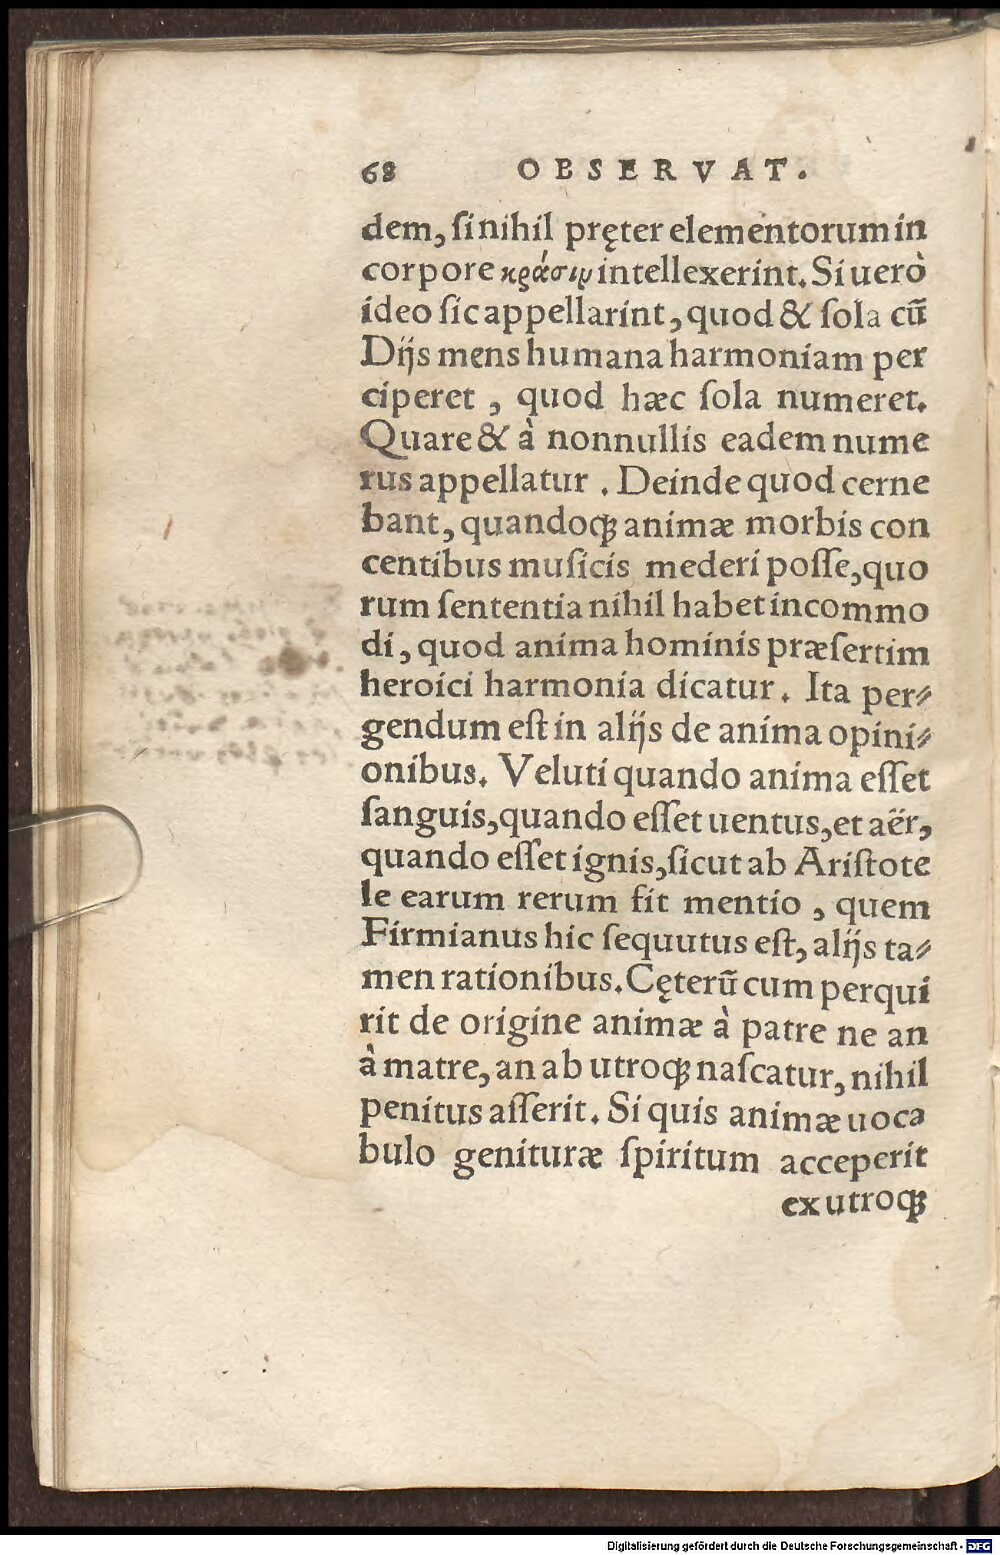 68 OBSERVAT.
dem, ſi nihil pręter elementorum in
corpore κράσιμ intellexerint. Si uerò
ideo ſic appellarint, quod & ſola cū
Dijs mens humana harmoniam per
ciperet, quod hæc ſola numeret.
Quare & à nonnullis eadem nume
rus appellatur. Deinde quod cerne
bant, quandoqꝫ animæ morbis con
centibus muſicis mederi poſſe, quo
rum ſententia nihil habet incommo
di, quod anima hominis præſertim
heroici harmonia dicatur. Ita per⸗
gendum eſt in alijs de anima opini⸗
onibus. Veluti quando anima eſſet
ſanguis, quando eſſet uentus, et aër,
quando eſſet ignis, ſicut ab Ariſtote
le earum rerum fit mentio, quem
Firmianus hic ſequutus eſt, alijs ta⸗
men rationibus. Cęterū cum perqui
rit de origine animæ à patre ne an
à matre, an ab utroqꝫ naſcatur, nihil
penitus aſſerit. Si quis animæ uoca
bulo genituræ ſpiritum acceperit
ex utroqꝫ
Digitalisierung gefördert durch die Deutsche Forschungsgemeinschaft - DFG